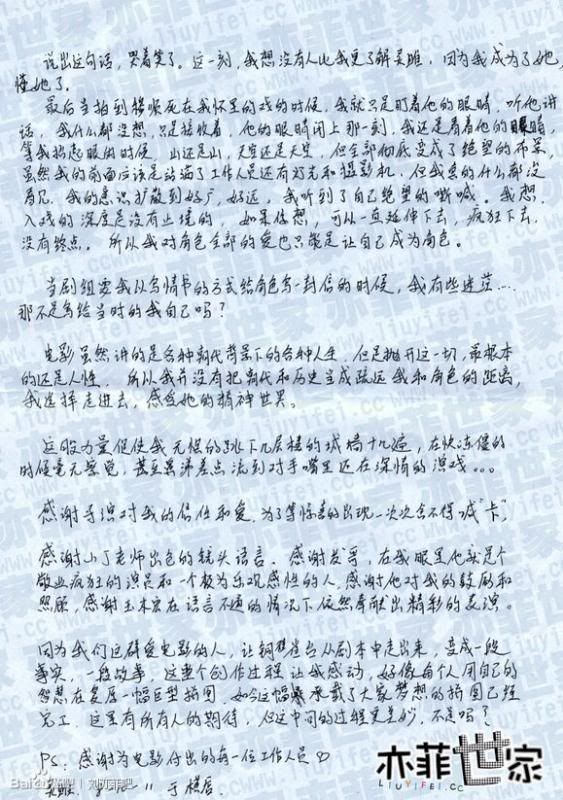 说出这句话，哭着笑了。这一刻，我想没有人比我更了解灵雎，因为我成为了她，
懂她了。
最后当拍到穆顺死在我怀里的戏的时候，我就只是盯着他的眼睛，听他讲
话，我什么都没想，只是接收着，他的眼睛闭上那一刻，我还是看着他的眼睛，
等我抬起眼的时候，山还是山，天空还是天空，但全部彻底变成了绝望的布景，
虽然我的前面应该是站满了工作人员还有灯光和摄影机，但我真的什么都没
看见。我的意识扩散到好广，好远，我听到了自己绝望的嘶喊。我想，
入戏的深度是没有止境的，如果你想，可以一直延伸下去，疯狂下去，
没有终点。所以我对角色全部的爱也只能是让自己成为角色。
当剧组要我以写情书的方式给角色写一封信的时候，我有些迷茫....
那不是写给当时的我自己吗？
电影虽然讲的是各种朝代背景下的各种人生，但是抛开这一切，最根本
的还是人性，所以我并没有把朝代和历史当成疏远我和角色的距离，
我选择走进去，感受她的精神世界。
这股力量促使我无惧的跳下几层楼的城墙十几遍，在快冻僵的
时候毫无察觉，甚至鼻涕差点流到对手嘴里还在深情的演戏。。。
感谢导演对我的信任和爱，为了等惊喜的出现一次次舍不得喊“卡”，
感谢小丁老师出色的镜头语言、感谢发哥，在我眼里他就是个
敬业疯狂的演员和一个极为乐观感性的人，感谢他对我的鼓励和
照顾，感谢玉木宏在语言不通的情况下依然奉献出精彩的表演。
因为我们这群爱电影的人，让铜雀台从剧本中走出来，变成一段
事实，一段故事，这整个创作过程让我感动，好像每个人用自己的
智慧在复原一幅巨型拼图，如今这幅承载了大家梦想的拼图已经
完工，这里有所有人的期待，但这中间的过程更美妙，不是吗？
PS：感谢为电影付出的每一位工作人员
灵雎 于横店
Baidu贴吧 | 刘亦菲吧
亦菲世家
LIUYIFEI.CC
亦菲世家
www.liuyifei.cc